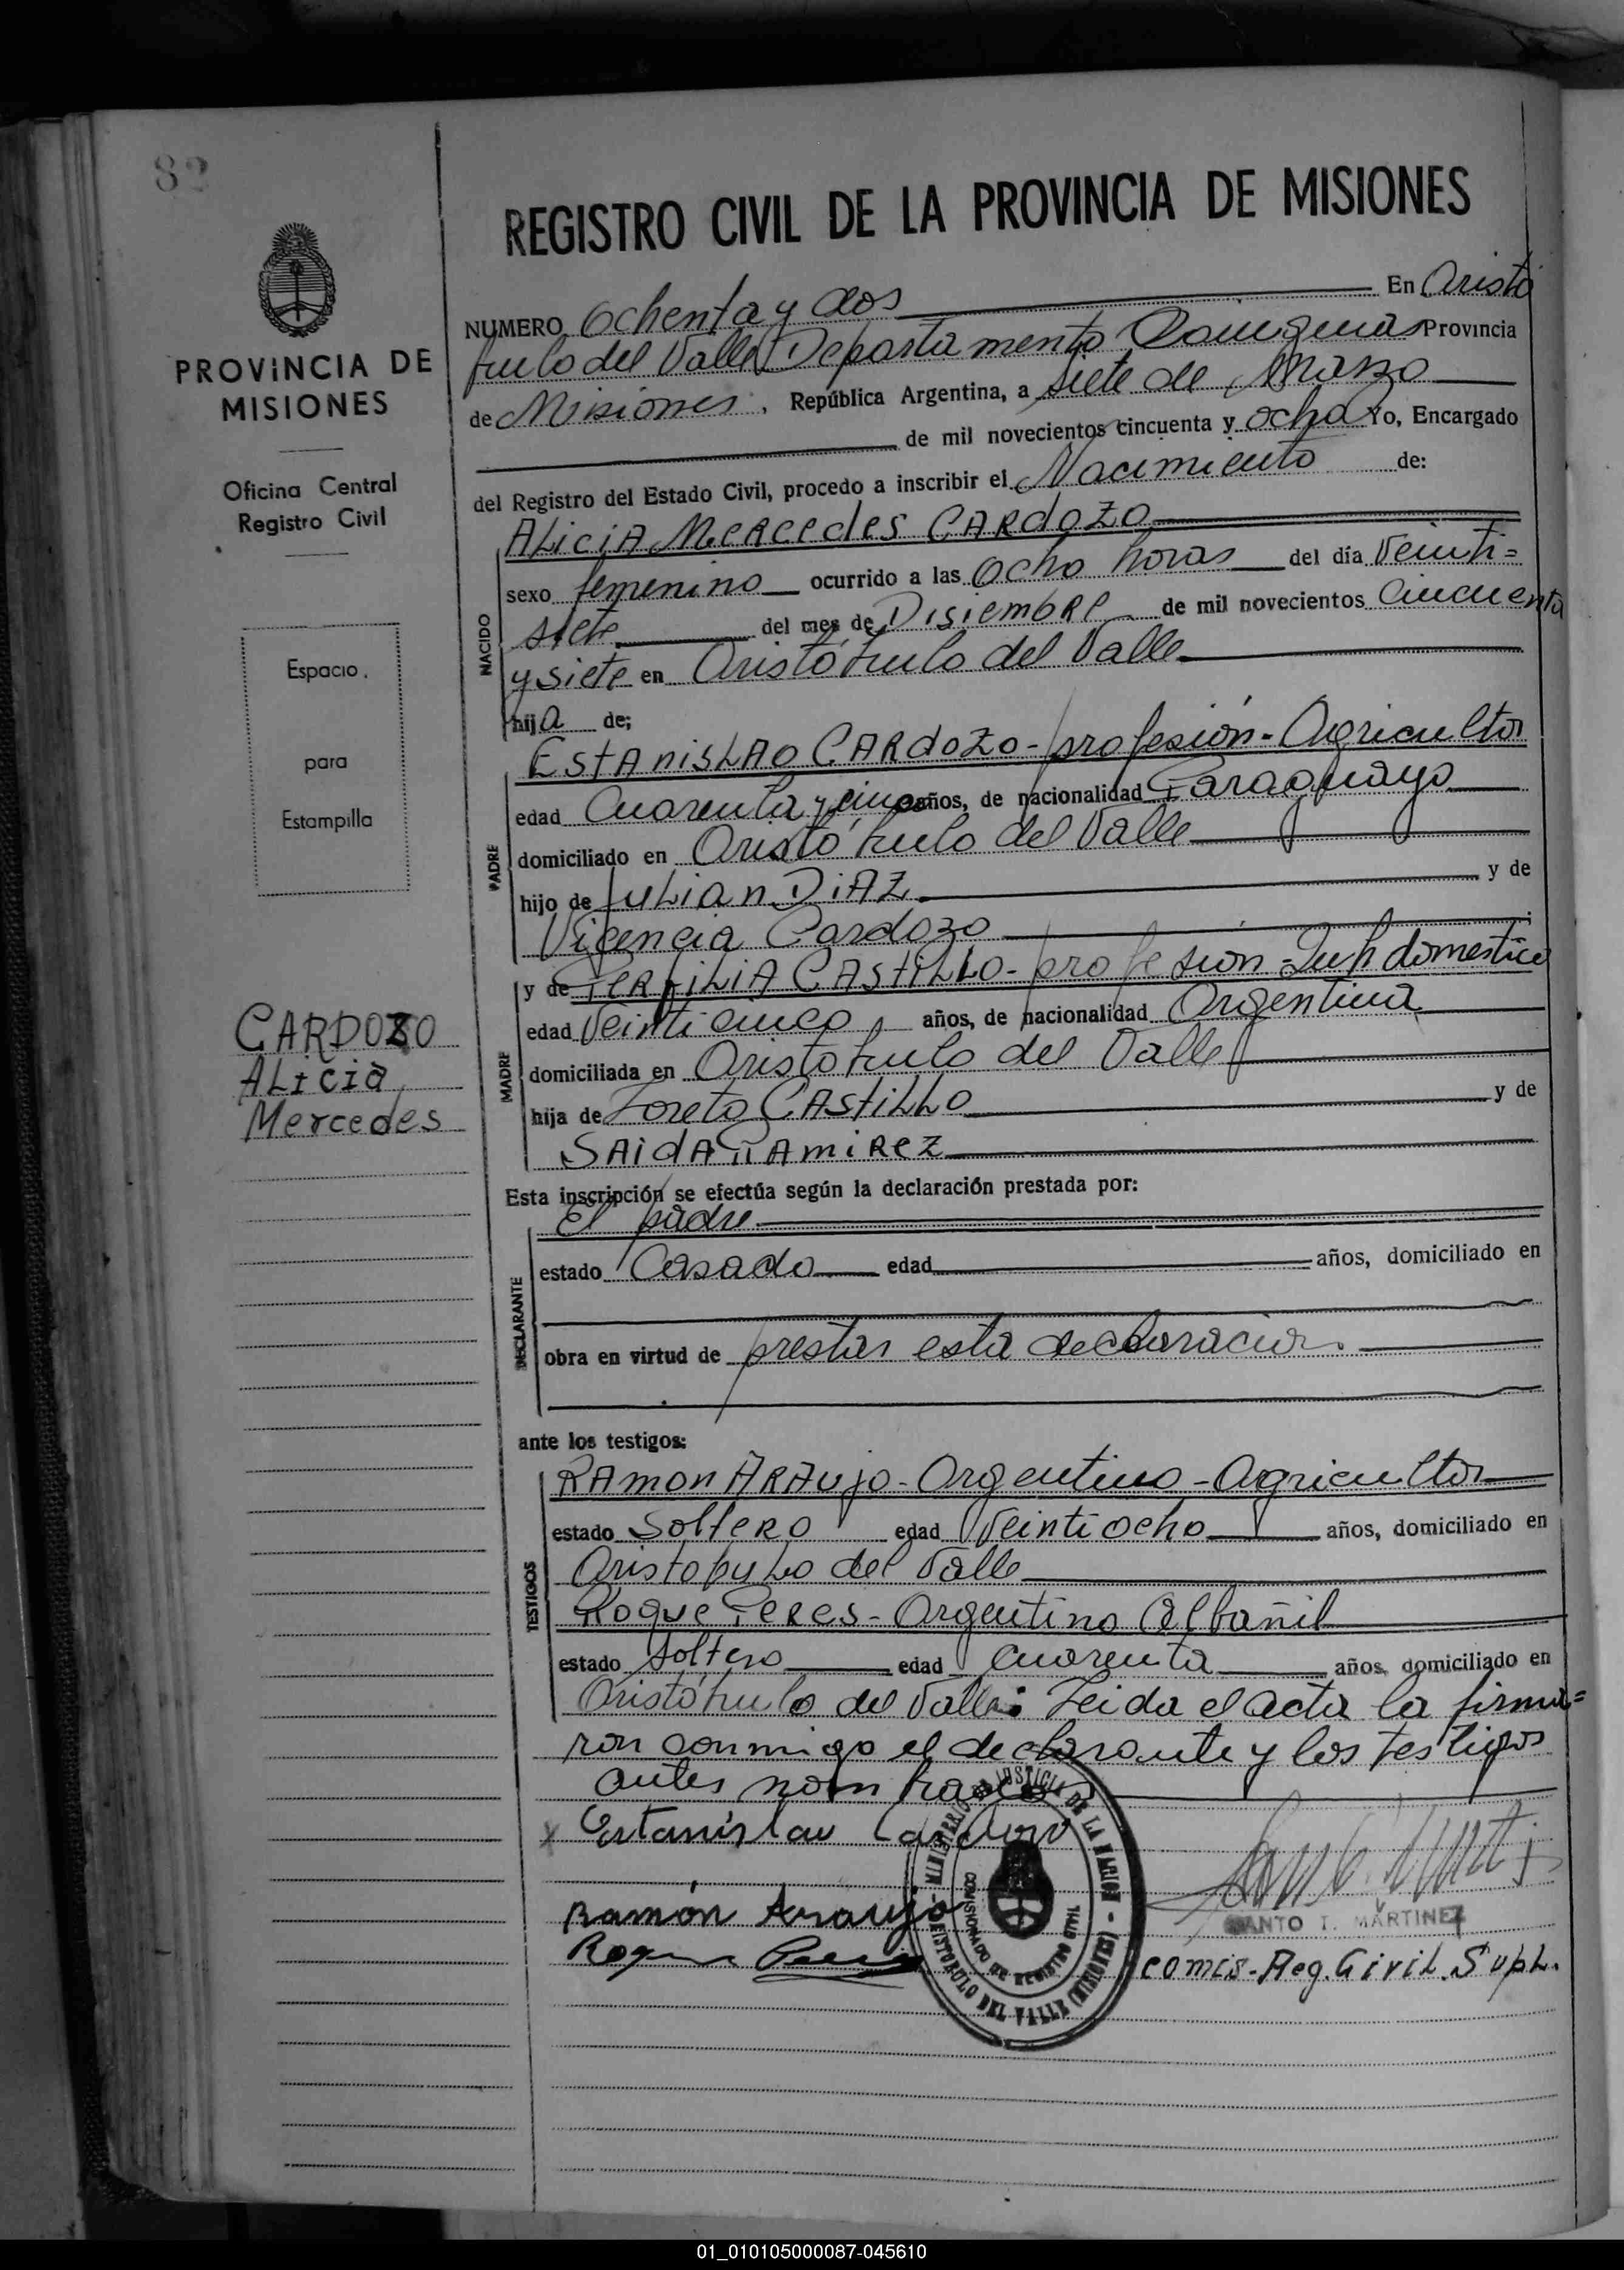 82
REGISTRO CIVIL DE LA PROVINCIA DE MISIONES
PROVINCIA DE
MISIONES
Oficina Central
Registro Civil
Espacio
para
Estampilla
CARDOZO
ALiCia
Mercedes
NUMERO Ochenta y dos En Aristó
bulo del Valle Departamento Cainguás Provincia
de Misiones, República Argentina, a siete de Marzo
de mil novecientos cincuenta y ocho Yo, Encargado
del Registro del Estado Civil, procedo a inscribir el Nacimiento de:
NACIDO
ALiciA MeRcedes CARdoZo
sexo femenino ocurrido a las Ocho horas del día Veinti=
siete del mes de DisiembRe de mil novecientos cincuenta
y siete en Aristóbulo del Valle
hija de;
PADRE
EstAnisLAo CARdoZo - profesión - Agricultor
edad Cuarenta y cinco años, de nacionalidad Paraguayo
domiciliado en Aristóbulo del Valle
hijo de JuLian DiAZ y de
Vicencia Cardozo
MADRE
y de PERfiLiA CAStiLLo - profesion - Quh domestico
edad Veinticinco años, de nacionalidad Argentina
domiciliada en Aristobulo del Valle
hija de Loreto CAStiLLo y de
SAidA RAmiReZ
Esta inscripción se efectúa según la declaración prestada por:
DECLARANTE
El padre
estado Casado edad años, domiciliado en
obra en virtud de prestar esta declaracion.
ante los testigos:
TESTIGOS
RAmon ARAujo - Argentino - Agricultor
estado SolteRo edad Veintiocho años, domiciliado en
AristobuLo del Valle
Roque PeRes - Argentino Albañil
estado soltero edad cuarenta años, domiciliado en
Aristóbulo del Valle: Leida el acta la firma=
ron conmigo el declarante y los testigos
antes nombrados
x Estanislau Cardozo
Ramón Araujo
SANTO I. MARTINEZ
comis - Reg. Civil. SupL.
MINISTERIO DE JUSTICIA DE LA NACION - ARISTOBULO DEL VALLE (MISIONES)
COMISIONADO DE REGISTRO CIVIL
01_010105000087-045610